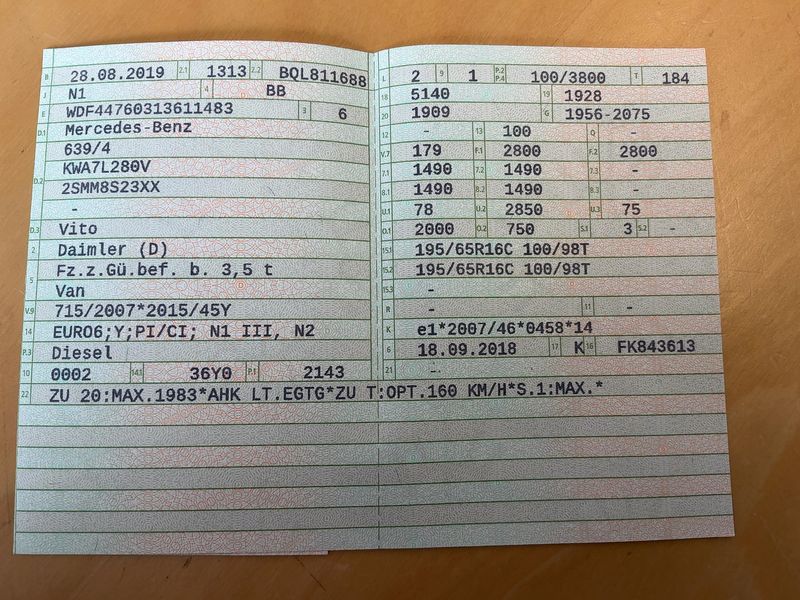 B 28.08.2019 2.1 1313 2.2 BQL811688
J N1 4 BB
E WDF44760313611483 3 6
D.1 Mercedes-Benz
639/4
D.2 KWA7L280V
2SMM8S23XX
-
D.3 Vito
2 Daimler (D)
5 Fz.z.Gü.bef. b. 3,5 t
Van
V.9 715/2007*2015/45Y
14 EURO6;Y;PI/CI; N1 III, N2
P.3 Diesel
10 0002 14.1 36Y0 P.1 2143
L 2 9 1 P.2 P.4 100/3800 T 184
18 5140 19 1928
20 1909 G 1956-2075
12 - 13 100 Q -
V.7 179 F.1 2800 F.2 2800
7.1 1490 7.2 1490 7.3 -
8.1 1490 8.2 1490 8.3 -
U.1 78 U.2 2850 U.3 75
O.1 2000 O.2 750 S.1 3 S.2 -
15.1 195/65R16C 100/98T
15.2 195/65R16C 100/98T
15.3 -
R - 11 -
K e1*2007/46*0458*14
6 18.09.2018 17 K 16 FK843613
21 -
22 ZU 20:MAX.1983*AHK LT.EGTG*ZU T:OPT.160 KM/H*S.1:MAX.*